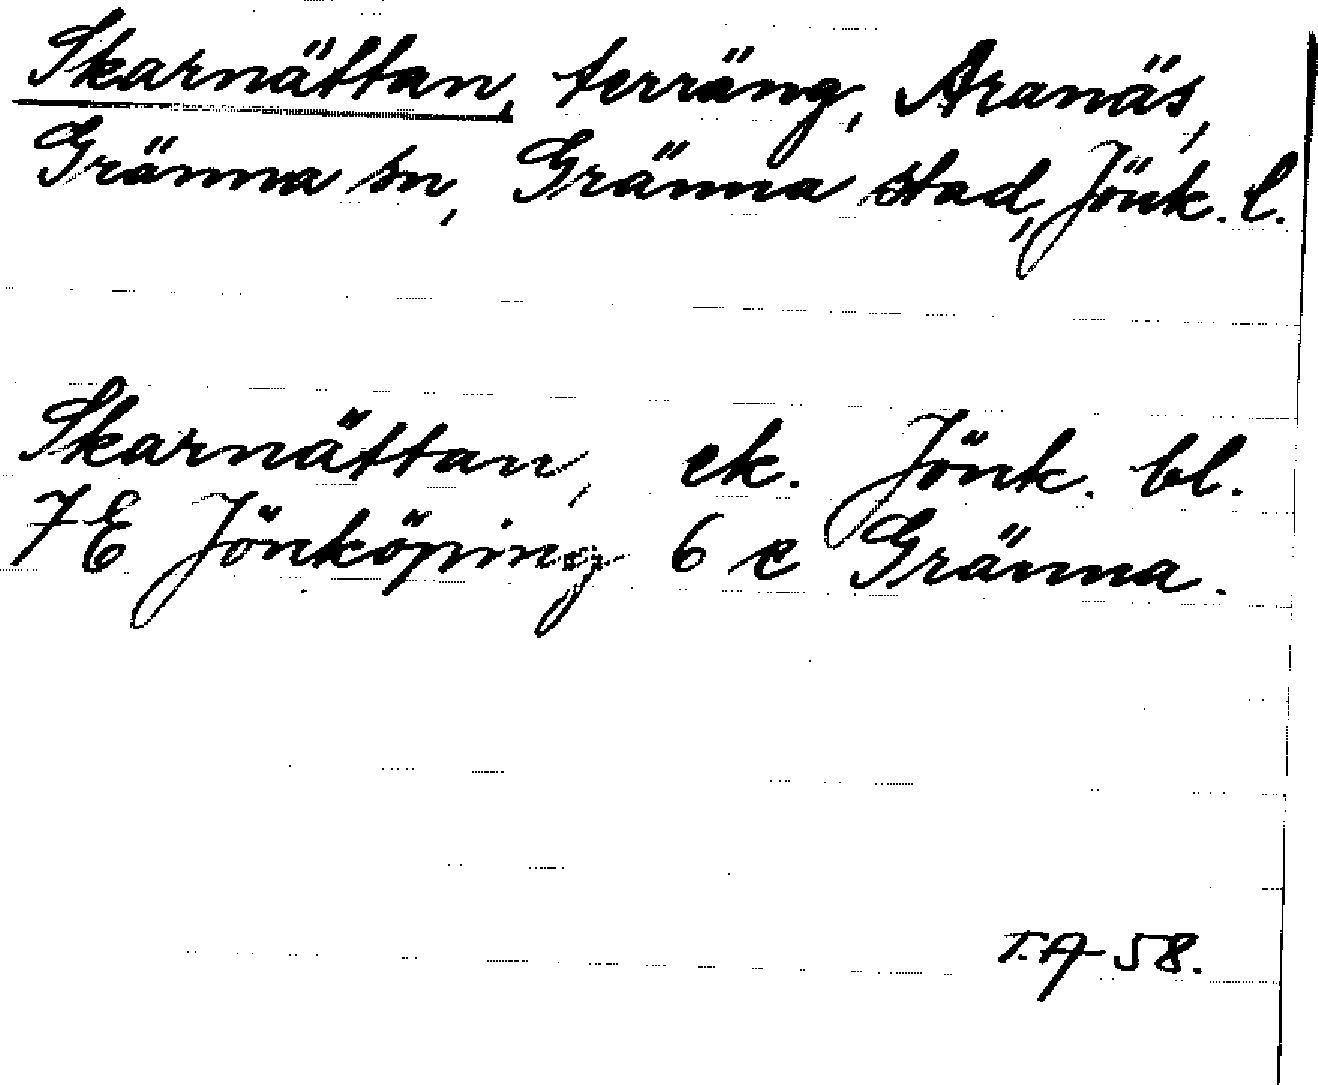 Skarnättan, terräng, Aranäs,
Gränna sn, Gränna stad, Jönk. l.
Skarnättan, ek. Jönk. bl.
7E Jönköping 6 e Gränna.
T.A-58.